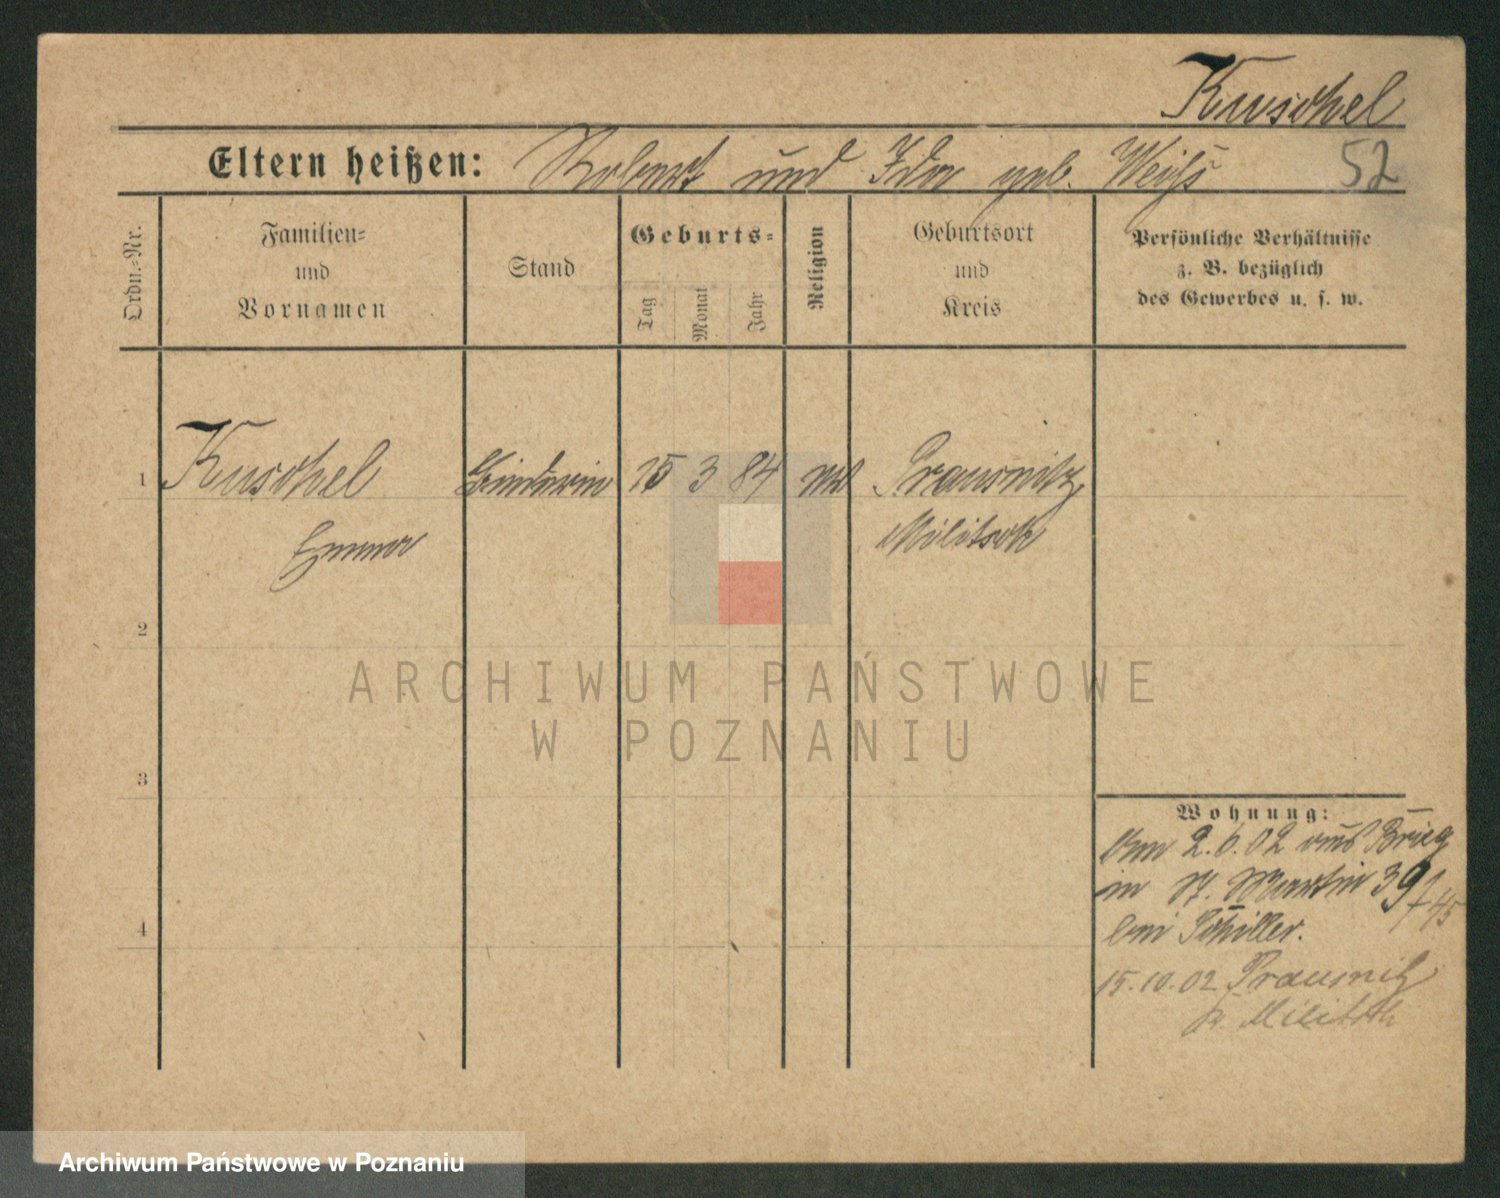 Kuschel
Eltern heißen: Robert und Ida geb. Weiß
52
Ordn.-Nr.
Familien-
und
Vornamen
Stand
Geburts-
Tag
Monat
Jahr
Religion
Geburtsort
und
Kreis
Persönliche Verhältnisse
z. B. bezüglich
des Gewerbes u. s. w.
1 Kuschel 15 3 84 Prausnitz
Emma Militsch
2
3
4
Wohnung:
2.6.02 aus Brieg
in St. Martin 39
bei Schiller.
15.10.02 Prausnitz
Militsch
ARCHIWUM PAŃSTWOWE
W POZNANIU
Archiwum Państwowe w Poznaniu